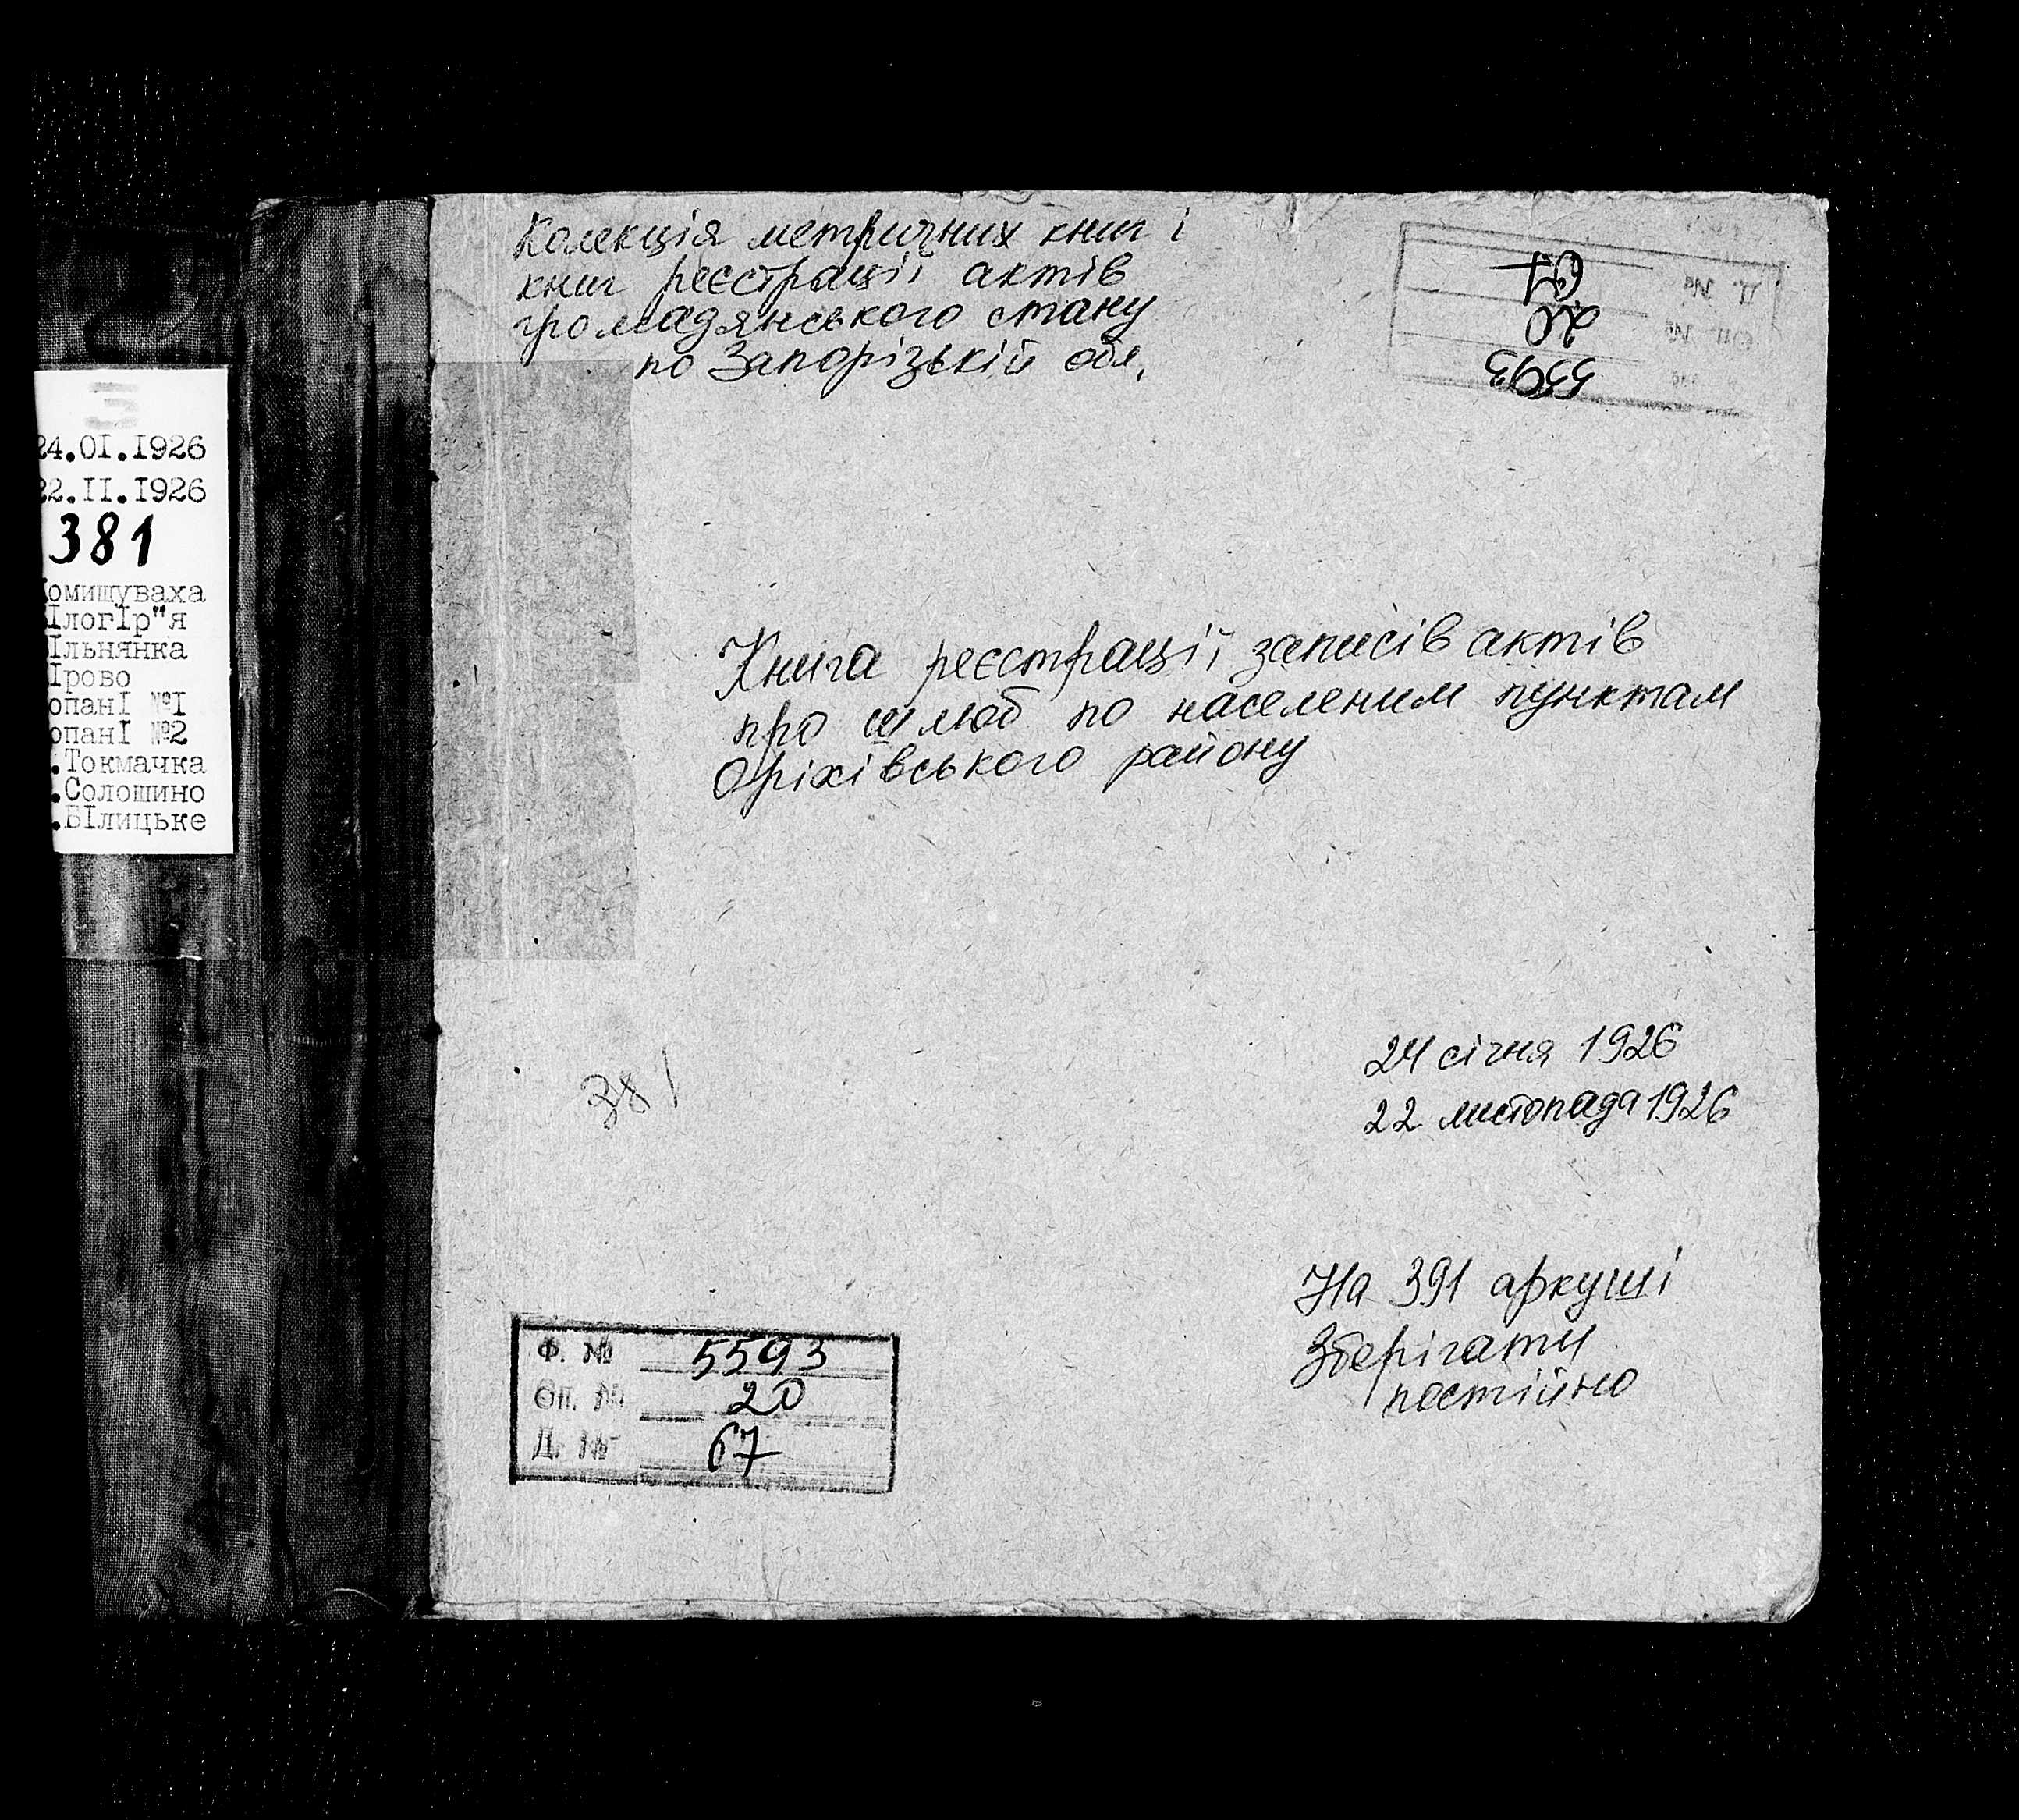 Колекція метричних книг і
книг реєстрації актів
громадянського стану
по Запорізькій обл.
5593
20
67
24.0I.I926
22.II.I926
381
Комишуваха
ІлогІр"я
Ільнянка
Ірово
опанІ №I
опанІ №2
.Токмачка
.Солошино
.БІлицьке
Книга реєстрації записів актів
про шлюб по населеним пунктам
Оріхівського району
381
24 січня 1926
22 листопада 1926
На 391 аркуші
Зберігати
постійно
Ф. № 5593
Оп. № 20
Д. № 67